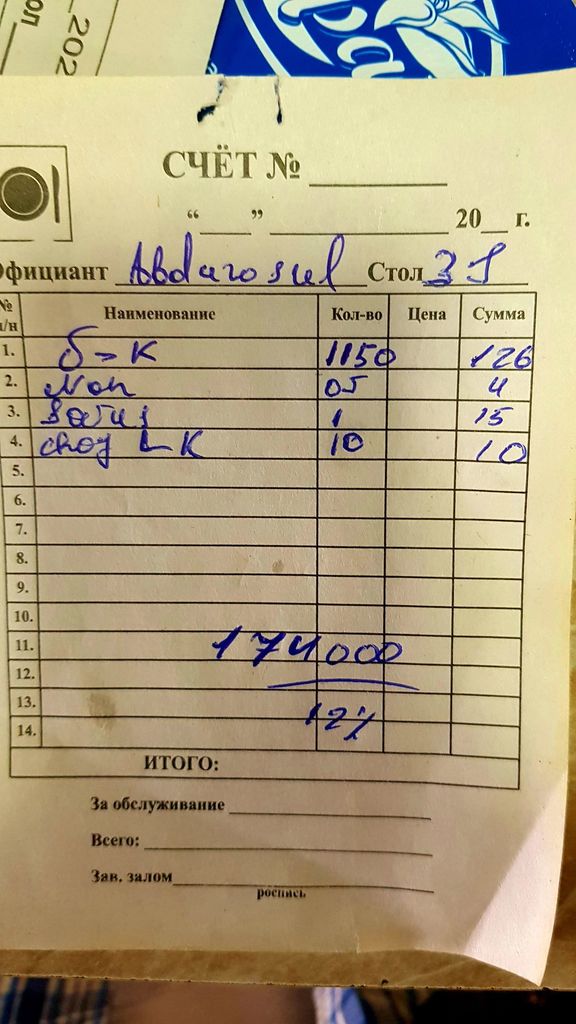 202
СЧЁТ №
“ ” 20 г.
Официант Abdurosul Стол
№ п/н Наименование Кол-во Цена Сумма
1. б-к 1150 126
2. Non 05 4
3. 1 15
4. choy L K 10 10
5.
6.
7.
8.
9.
10.
11. 174000
12.
13. 12%
14.
ИТОГО:
За обслуживание
Всего:
Зав. залом
роспись